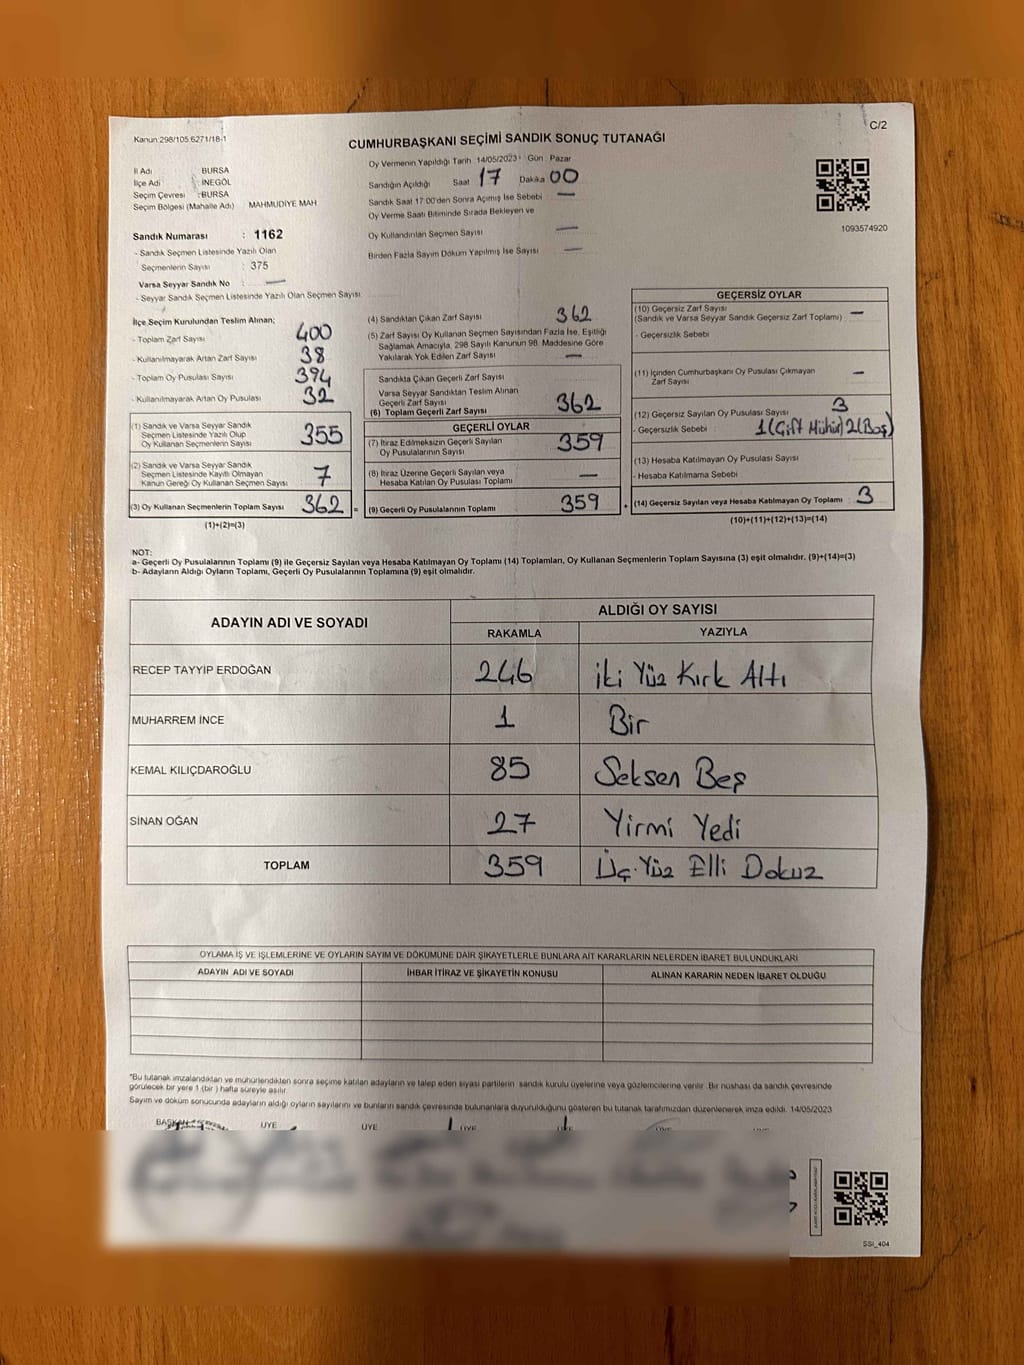 Kanun 298/105 6271/18-1
C/2
CUMHURBAŞKANI SEÇİMİ SANDIK SONUÇ TUTANAĞI
İl Adı : BURSA
İlçe Adı : İNEGÖL
Seçim Çevresi : BURSA
Seçim Bölgesi (Mahalle Adı) MAHMUDİYE MAH
Sandık Numarası : 1162
- Sandık Seçmen Listesinde Yazılı Olan
Seçmenlerin Sayısı : 375
Varsa Seyyar Sandık No : —
- Seyyar Sandık Seçmen Listesinde Yazılı Olan Seçmen Sayısı
Oy Vermenin Yapıldığı Tarih 14/05/2023 Gün Pazar
Sandığın Açıldığı Saat 17 Dakika 00
Sandık Saat 17:00'den Sonra Açılmış İse Sebebi —
Oy Verme Saati Bitiminde Sırada Bekleyen ve
Oy Kullandırılan Seçmen Sayısı —
Birden Fazla Sayım Döküm Yapılmış İse Sayısı —
1093574920
İlçe Seçim Kurulundan Teslim Alınan;
- Toplam Zarf Sayısı 400
- Kullanılmayarak Artan Zarf Sayısı 38
- Toplam Oy Pusulası Sayısı 394
- Kullanılmayarak Artan Oy Pusulası 32
(1) Sandık ve Varsa Seyyar Sandık
Seçmen Listesinde Yazılı Olup
Oy Kullanan Seçmenlerin Sayısı 355
(2) Sandık ve Varsa Seyyar Sandık
Seçmen Listesinde Kayıtlı Olmayan
Kanun Gereği Oy Kullanan Seçmen Sayısı 7
(3) Oy Kullanan Seçmenlerin Toplam Sayısı 362 =
(1)+(2)=(3)
(4) Sandıktan Çıkan Zarf Sayısı 362
(5) Zarf Sayısı Oy Kullanan Seçmen Sayısından Fazla İse, Eşitliği
Sağlamak Amacıyla, 298 Sayılı Kanunun 98. Maddesine Göre
Yakılarak Yok Edilen Zarf Sayısı —
Sandıkta Çıkan Geçerli Zarf Sayısı
Varsa Seyyar Sandıktan Teslim Alınan
Geçerli Zarf Sayısı
(6) Toplam Geçerli Zarf Sayısı 362
GEÇERLİ OYLAR
(7) İtiraz Edilmeksizin Geçerli Sayılan
Oy Pusulalarının Sayısı 359
(8) İtiraz Üzerine Geçerli Sayılan veya
Hesaba Katılan Oy Pusulası Toplamı —
(9) Geçerli Oy Pusulalarının Toplamı 359 +
GEÇERSİZ OYLAR
(10) Geçersiz Zarf Sayısı
(Sandık ve Varsa Seyyar Sandık Geçersiz Zarf Toplamı) —
- Geçersizlik Sebebi
(11) İçinden Cumhurbaşkanı Oy Pusulası Çıkmayan
Zarf Sayısı —
(12) Geçersiz Sayılan Oy Pusulası Sayısı 3
- Geçersizlik Sebebi : 1(Çift Mühür) 2(Boş)
(13) Hesaba Katılmayan Oy Pusulası Sayısı
- Hesaba Katılmama Sebebi
(14) Geçersiz Sayılan veya Hesaba Katılmayan Oy Toplamı 3
(10)+(11)+(12)+(13)=(14)
NOT:
a- Geçerli Oy Pusulalarının Toplamı (9) ile Geçersiz Sayılan veya Hesaba Katılmayan Oy Toplamı (14) Toplamları, Oy Kullanan Seçmenlerin Toplam Sayısına (3) eşit olmalıdır. (9)+(14)=(3)
b- Adayların Aldığı Oyların Toplamı, Geçerli Oy Pusulalarının Toplamına (9) eşit olmalıdır.
ADAYIN ADI VE SOYADI
ALDIĞI OY SAYISI
RAKAMLA YAZIYLA
RECEP TAYYİP ERDOĞAN 246 İki Yüz Kırk Altı
MUHARREM İNCE 1 Bir
KEMAL KILIÇDAROĞLU 85 Seksen Beş
SİNAN OĞAN 27 Yirmi Yedi
TOPLAM 359 Üç Yüz Elli Dokuz
OYLAMA İŞ VE İŞLEMLERİNE VE OYLARIN SAYIM VE DÖKÜMÜNE DAİR ŞİKAYETLERLE BUNLARA AİT KARARLARIN NELERDEN İBARET BULUNDUKLARI
ADAYIN ADI VE SOYADI İHBAR İTİRAZ VE ŞİKAYETİN KONUSU ALINAN KARARIN NEDEN İBARET OLDUĞU
*Bu tutanak imzalandıktan ve mühürlendikten sonra seçime katılan adayların ve talep eden siyasi partilerin sandık kurulu üyelerine veya gözlemcilerine verilir. Bir nüshası da sandık çevresinde
görülecek bir yere 1 (bir) hafta süreyle asılır.
Sayım ve döküm sonucunda adayların aldığı oyların sayılarını ve bunların sandık çevresinde bulunanlara duyurulduğunu gösteren bu tutanak tarafımızdan düzenlenerek imza edildi. 14/05/2023
BAŞKAN ÜYE ÜYE ÜYE
SSI_404